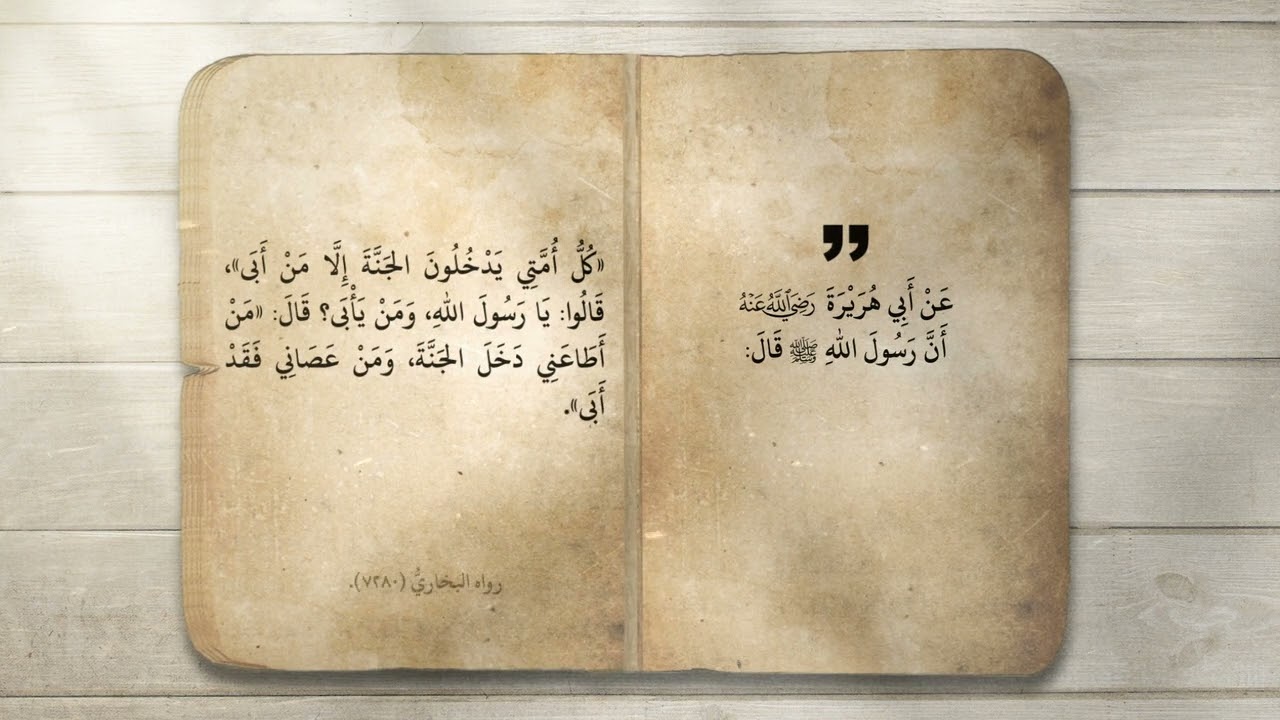 ”
عَنْ أَبِي هُرَيْرَةَ رَضِيَ اللَّهُ عَنْهُ
أَنَّ رَسُولَ اللهِ ﷺ قَالَ:
«كُلُّ أُمَّتِي يَدْخُلُونَ الجَنَّةَ إِلَّا مَنْ أَبَى»،
قَالُوا: يَا رَسُولَ اللهِ، وَمَنْ يَأْبَى؟ قَالَ: «مَنْ
أَطَاعَنِي دَخَلَ الجَنَّةَ، وَمَنْ عَصَانِي فَقَدْ
أَبَى».
رواه البخاريُّ (٧٢٨٠).